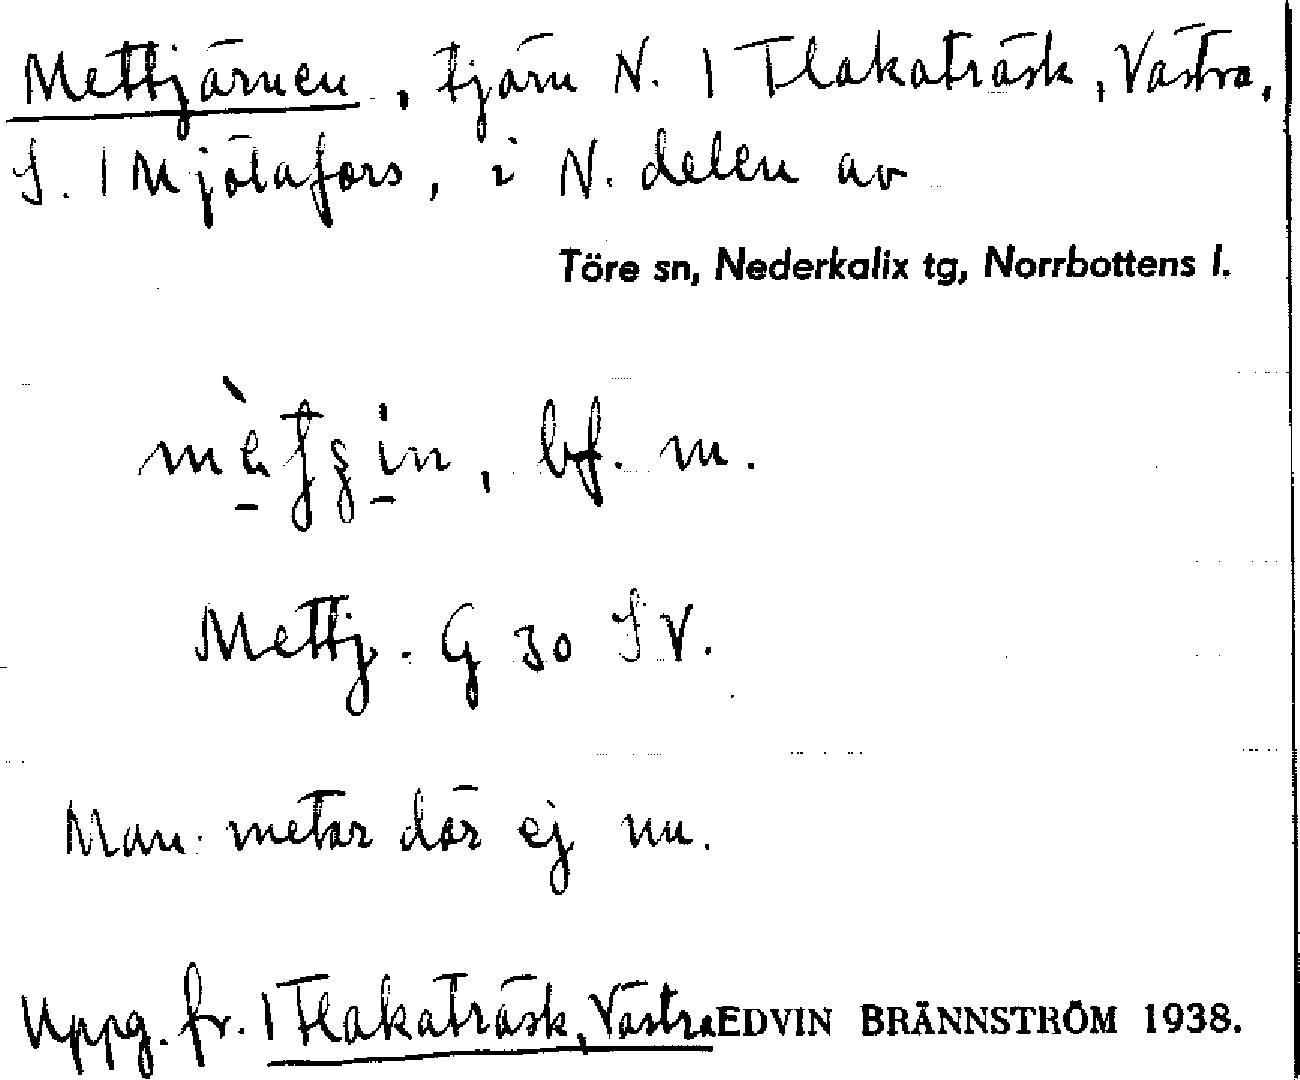 Mettjärnen, tjärn N. 1 Flakaträsk, Västra,
S. 1 Mjölafors, i N. delen av
Töre sn, Nederkalix tg, Norrbottens l.
bf. m.
Mettj. G 30 SV.
Man metar där ej nu.
Uppg. fr. 1 Flakaträsk, Västra EDVIN BRÄNNSTRÖM 1938.